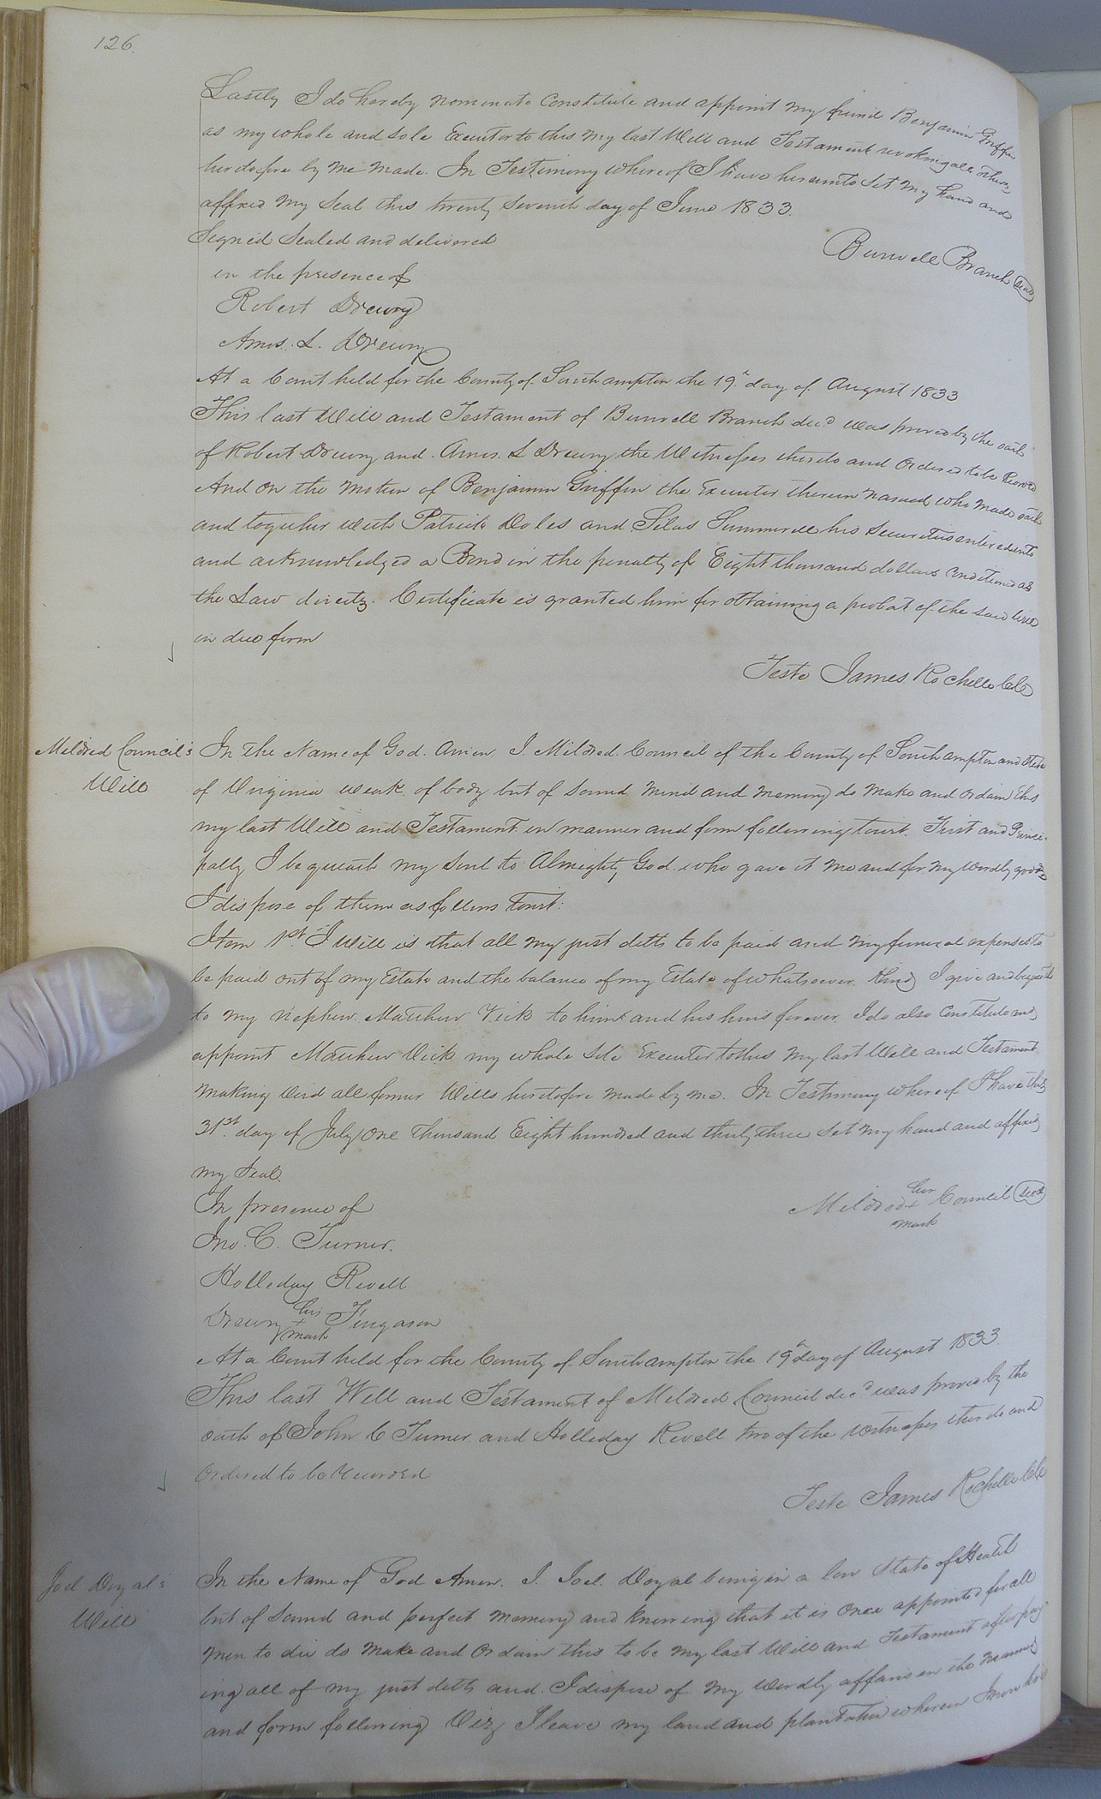 126.
Lastly I do hereby nominate Constitute and appoint my friend Benjamin Griffin
as my whole and sole Executor to this my last Will and Testament revoking all others
heretofore by me made. In Testimony whereof I have hereunto Set my hand and
affixed my Seal this twenty Seventh day of June 1833.
Signed Sealed and delivered
Burwell Branch Seal
in the presence of
Robert Drewry
Amos. L. Drewry
At a Court held for the County of Southampton the 19th day of August 1833
This last Will and Testament of Burwell Branch decd was proved by the oath
of Robert Drewry and Amos. L Drewry the Witnesses thereto and Ordered to be Recorded
And on the Motion of Benjamin Griffin the Executor therein named who made oath
and together with Patrick Doles and Silas Summerell his Securities entered into
and acknowledged a Bond in the penalty of Eight thousand dollars Conditioned as
the Law directs. Certificate is granted him for obtaining a probat of the said Will
in due form
Teste James Rochelle Clk
Mildred Council's
Will
In the Name of God. Amen I Mildred Council of the County of Southampton and State
of Virginia weak of body but of Sound Mind and memory do make and ordain this
my last Will and Testament in manner and form following towit. First and Princi-
pally I bequeath my Soul to Almighty God who gave it me and for my wordly goods
I dispose of them as follows Towit:
Item 1st I Will is that all my just debts to be paid and my funeral expenses to
be paid out of my Estate and the balance of my Estate of whatsoever Kind I give and bequeath
to my Nephew Matthew Vick to him and his heirs forever I do also Constitute and
appoint Matthew Vick my whole Sole Executor to this my last Will and Testament
making void all former Wills heretofore made by me. In Testimony whereof I have this
31st day of July One thousand Eight hundred and thirty three Set my hand and affixed
my Seal
In presence of
Mildred her + mark Council Seal
Jno. C. Turner.
Holleday Revell
Drewry his + mark Fingason
At a Court held for the County of Southampton the 19th day of August 1833.
This last Will and Testament of Mildred Council decd was proved by the
oath of John C Turner and Holleday Revell two of the witnesses thereto and
Ordered to be Recorded
Teste James Rochelle Clk
Joel Doyal's
Will
In the Name of God Amen. I. Joel. Doyal being in a low State of Health
but of Sound and perfect memory and knowing that it is once appointed for all
men to die do make and Ordain this to be my last Will and Testament after pay-
ing all of my just debts and I dispose of my wordly affairs in the manner
and form following Viz, I leave my land and plantation wherein I now